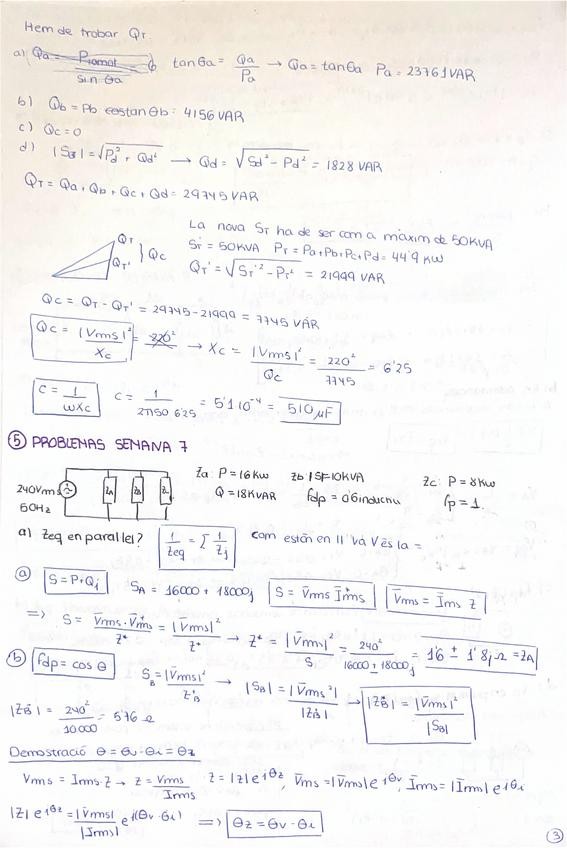 Hem de trobar QT.
a) Qa = Ptomat / sin θa tanθa = Qa / Pa → Qa = tanθa Pa = 23761 VAR
b) Qb = Pb tanθb = 4156 VAR
c) Qc = 0
d) |Sd| = √(Pd² + Qd²) → Qd = √(Sd² - Pd²) = 1828 VAR
QT = Qa + Qb + Qc + Qd = 29745 VAR
La nova ST ha de ser com a màxim de 50KVA
ST' = 50KVA PT = Pa+Pb+Pc+Pd = 44'9 KW
QT' = √(ST'² - PT²) = 21999 VAR
QT
QT'
} Qc
Qc = QT - QT' = 29745 - 21999 = 7745 VAR
Qc = |Vrms|² / Xc = 220² → Xc = |Vrms|² / Qc = 220² / 7745 = 6'25
C = 1 / ωXc C = 1 / 2π50 6'25 = 5'1 10⁻⁴ = 510 μF
⑤ PROBLEMAS SEMANA 7
240Vrms
50Hz
ZA ZB ZC
Za: P = 16KW Zb: |S| = 10KVA Zc: P = 8KW
Q = 18KVAR fdp = 0'6 inductiu fp = 1.
a) Zeq en paral·lel? 1/Zeq = Σ 1/Zj Com están en II la V és la =
ⓐ S = P+Qj SA = 16000 + 18000j S = V̄rms Īrms* V̄rms = Īrms Z
⇒ S = V̄rms · V̄rms* / Z* = |V̄rms|² / Z* → Z* = |V̄rms|² / S = 240² / 16000 ± 18000j = 1'6 ± 1'8j Ω = ZA
ⓑ fdp = cos θ SB = |Vrms|² / Z*B → |SB| = |Vrms²| / |ZB| → |ZB| = |V̄rms|² / |SB|
|ZB| = 240² / 10000 = 5'76 Ω
Demostració θ = θv - θi = θz
Vrms = Irms·Z → Z = Vrms / Irms Z = |Z| e^jθz, V̄rms = |Vrms| e^jθv, Īrms = |Irms| e^jθi
|Z| e^jθz = |V̄rms| / |Īrms| e^j(θv - θi) ⇒ θz = θv - θi
3